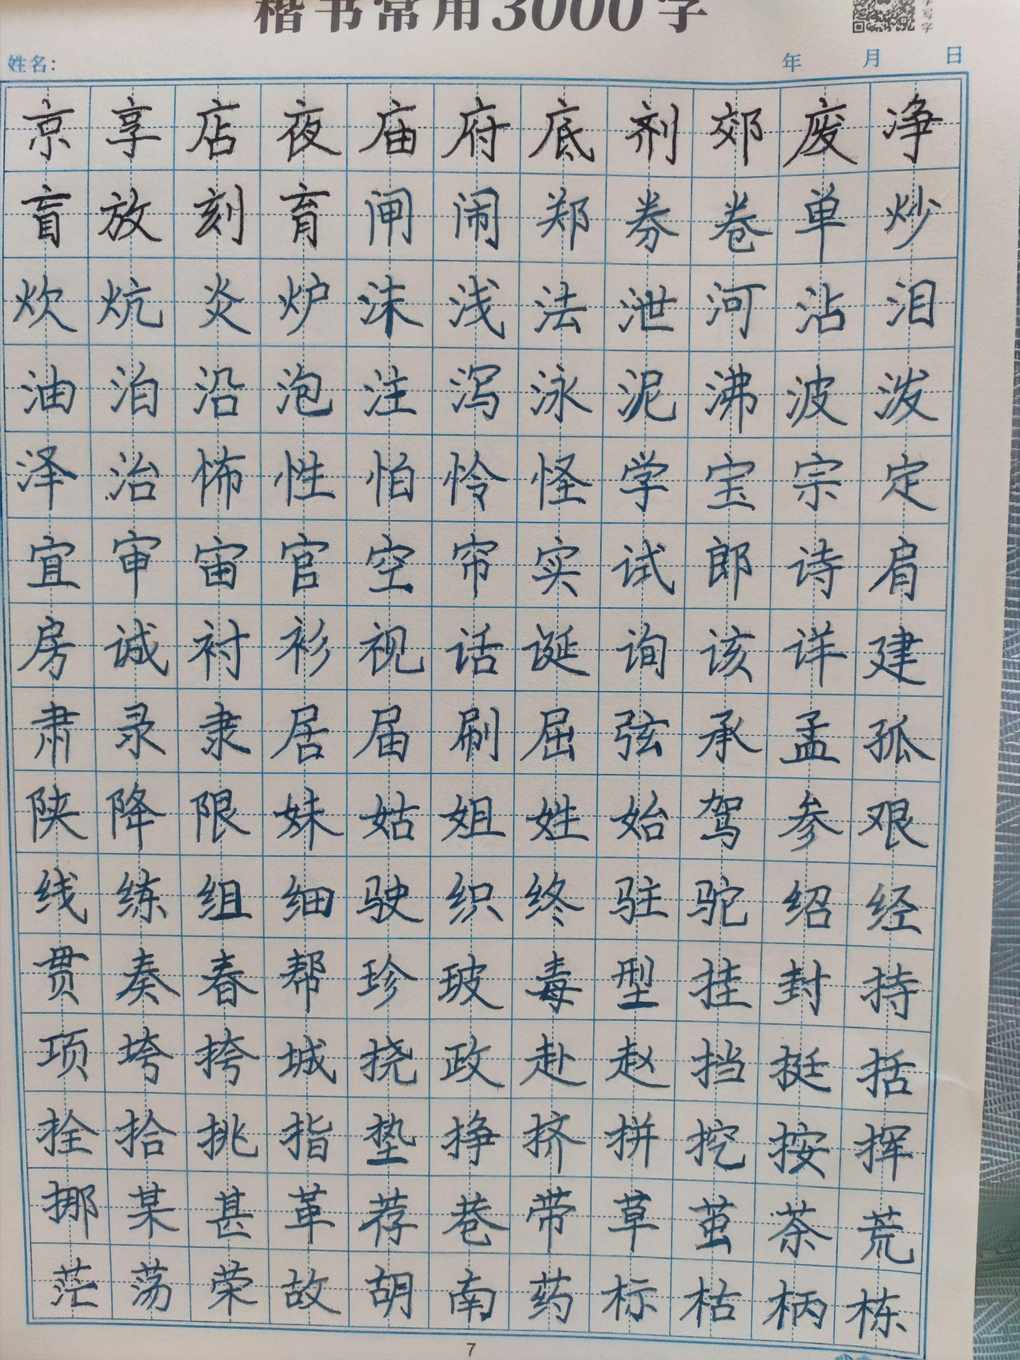 楷书常用3000字
姓名: 年 月 日
京享店夜庙府底剂郊废净
盲放刻育闸闹郑券卷单炒
炊炕炎炉沫浅法泄河沾泪
油泊沿泡注泻泳泥沸波泼
泽治怖性怕怜怪学宝宗定
宜审宙官空帘实试郎诗肩
房诚衬衫视话诞询该详建
肃录隶居届刷屈弦承孟孤
陕降限妹姑姐姓始驾参艰
线练组细驶织终驻驼绍经
贯奏春帮珍玻毒型挂封持
项垮挎城挠政赴赵挡挺括
拴拾挑指垫挣挤拼挖按挥
挪某甚革荐巷带草茧茶荒
茫荡荣故胡南药标枯柄栋
7